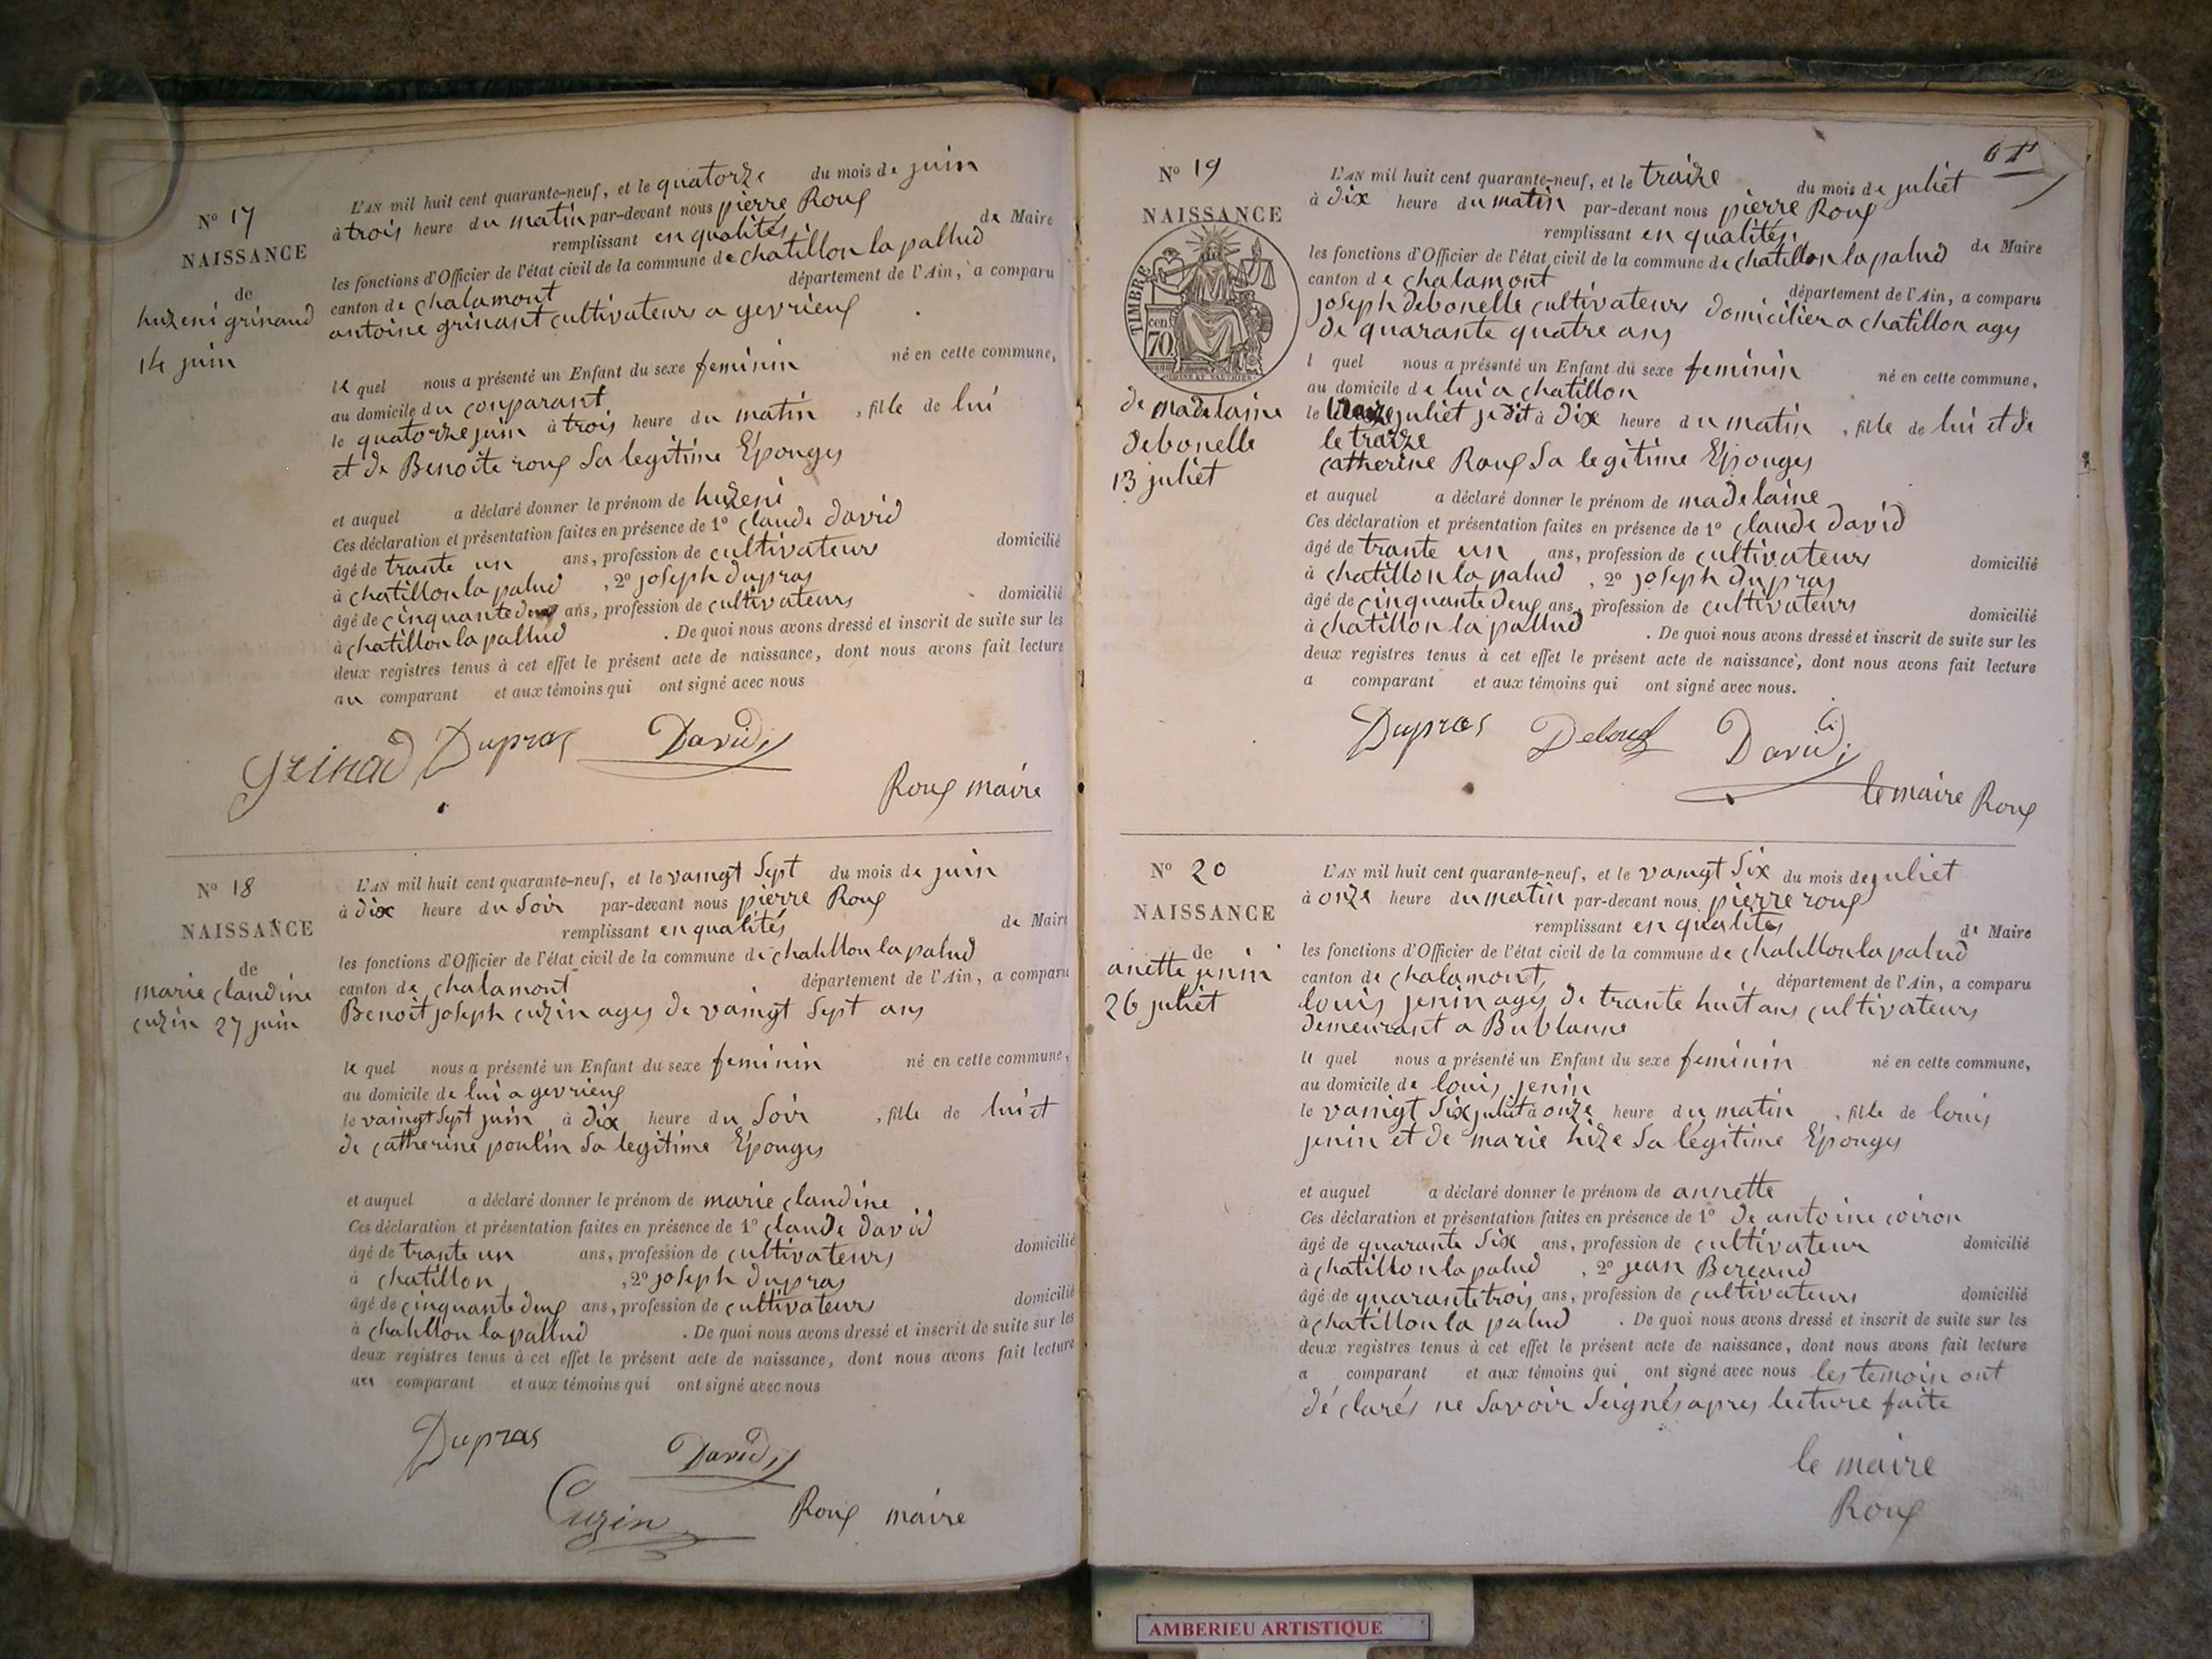 N° 17
NAISSANCE
de
huzeni grinaud
14 juin
L'AN mil huit cent quarante-neuf, et le quatorze du mois de juin
à trois heure du matin par-devant nous pierre Roux
remplissant en qualités de Maire
les fonctions d'Officier de l'état civil de la commune de chatillon la pallud
canton de chalamont département de l'Ain, a comparu
antoine grinant cultivateurs a gevrieux
le quel nous a présenté un Enfant du sexe feminin né en cette commune,
au domicile du conparant
le quatorze juin à trois heure du matin , fille de lui
et de Benoite roux sa legitime Epouges
et auquel a déclaré donner le prénom de huzeni
Ces déclaration et présentation faites en présence de 1° claude david
âgé de trante un ans, profession de cultivateurs domicilié
à chatillon la palud , 2° joseph dupras
âgé de cinquante deux ans, profession de cultivateurs domicilié
à chatillon la pallud . De quoi nous avons dressé et inscrit de suite sur les
deux registres tenus à cet effet le présent acte de naissance, dont nous avons fait lecture
au comparant et aux témoins qui ont signé avec nous
Grinad Dupras David
Roux maire
N° 18
NAISSANCE
de
marie claudine
cuzin 27 juin
L'AN mil huit cent quarante-neuf, et le vaingt sept du mois de juin
à dix heure du soir par-devant nous pierre Roux
remplissant en qualités de Maire
les fonctions d'Officier de l'état civil de la commune de chatillon la palud
canton de chalamont département de l'Ain, a comparu
Benoit joseph cuzin ages de vaingt sept ans
le quel nous a présenté un Enfant du sexe feminin né en cette commune,
au domicile de lui a gevrieux
le vaingt sept juin à dix heure du soir , fille de lui et
de catherine poulin sa legitime Epouges
et auquel a déclaré donner le prénom de marie claudine
Ces déclaration et présentation faites en présence de 1° claude david
âgé de trante un ans, profession de cultivateurs domicilié
à chatillon , 2° joseph dupras
âgé de cinquante deux ans, profession de cultivateurs domicilié
à chatillon la pallud . De quoi nous avons dressé et inscrit de suite sur les
deux registres tenus à cet effet le présent acte de naissance, dont nous avons fait lecture
au comparant et aux témoins qui ont signé avec nous
Dupras David
Cuzin Roux maire
N° 19
NAISSANCE
TIMBRE
70 cent
de madelaine
debonelle
13 juliet
L'AN mil huit cent quarante-neuf, et le traize du mois de juliet
à dix heure du matin par-devant nous pierre Roux
remplissant en qualités de Maire
les fonctions d'Officier de l'état civil de la commune de chatillon la palud
canton de chalamont département de l'Ain, a comparu
joseph debonelle cultivateurs domicilier a chatillon ages
de quarante quatre ans
l quel nous a présenté un Enfant du sexe feminin né en cette commune,
au domicile de lui a chatillon
le juliet je dit à dix heure du matin , fille de lui et de
le traize
catherine Roux sa legitime Epouges
et auquel a déclaré donner le prénom de madelaine
Ces déclaration et présentation faites en présence de 1° claude david
âgé de trante un ans, profession de cultivateurs domicilié
à chatillon la palud , 2° joseph dupras
âgé de cinquante deux ans, profession de cultivateurs domicilié
à chatillon la pallud . De quoi nous avons dressé et inscrit de suite sur les
deux registres tenus à cet effet le présent acte de naissance, dont nous avons fait lecture
a comparant et aux témoins qui ont signé avec nous.
Dupras David
le maire Roux
N° 20
NAISSANCE
de
anette jenin
26 juliet
L'AN mil huit cent quarante-neuf, et le vaingt six du mois de juliet
à onze heure du matin par-devant nous pierre roux
remplissant en qualités de Maire
les fonctions d'Officier de l'état civil de la commune de chatillon la palud
canton de chalamont département de l'Ain, a comparu
louis jenin ages de trante huit ans cultivateurs
demeurant a Bublanne
le quel nous a présenté un Enfant du sexe feminin né en cette commune,
au domicile de louis jenin
le vaingt six juliet à onze heure du matin , fille de louis
jenin et de marie hize sa légitime Epouges
et auquel a déclaré donner le prénom de annette
Ces déclaration et présentation faites en présence de 1° de antoine coiron
âgé de quarante six ans, profession de cultivateur domicilié
à chatillon la palud , 2° jean Bereaud
âgé de quarante trois ans, profession de cultivateurs domicilié
à chatillon la palud . De quoi nous avons dressé et inscrit de suite sur les
deux registres tenus à cet effet le présent acte de naissance, dont nous avons fait lecture
a comparant et aux témoins qui ont signé avec nous les temoin ont
déclarés ne savoir seignés apres lecture faite
le maire
Roux
AMBERIEU ARTISTIQUE